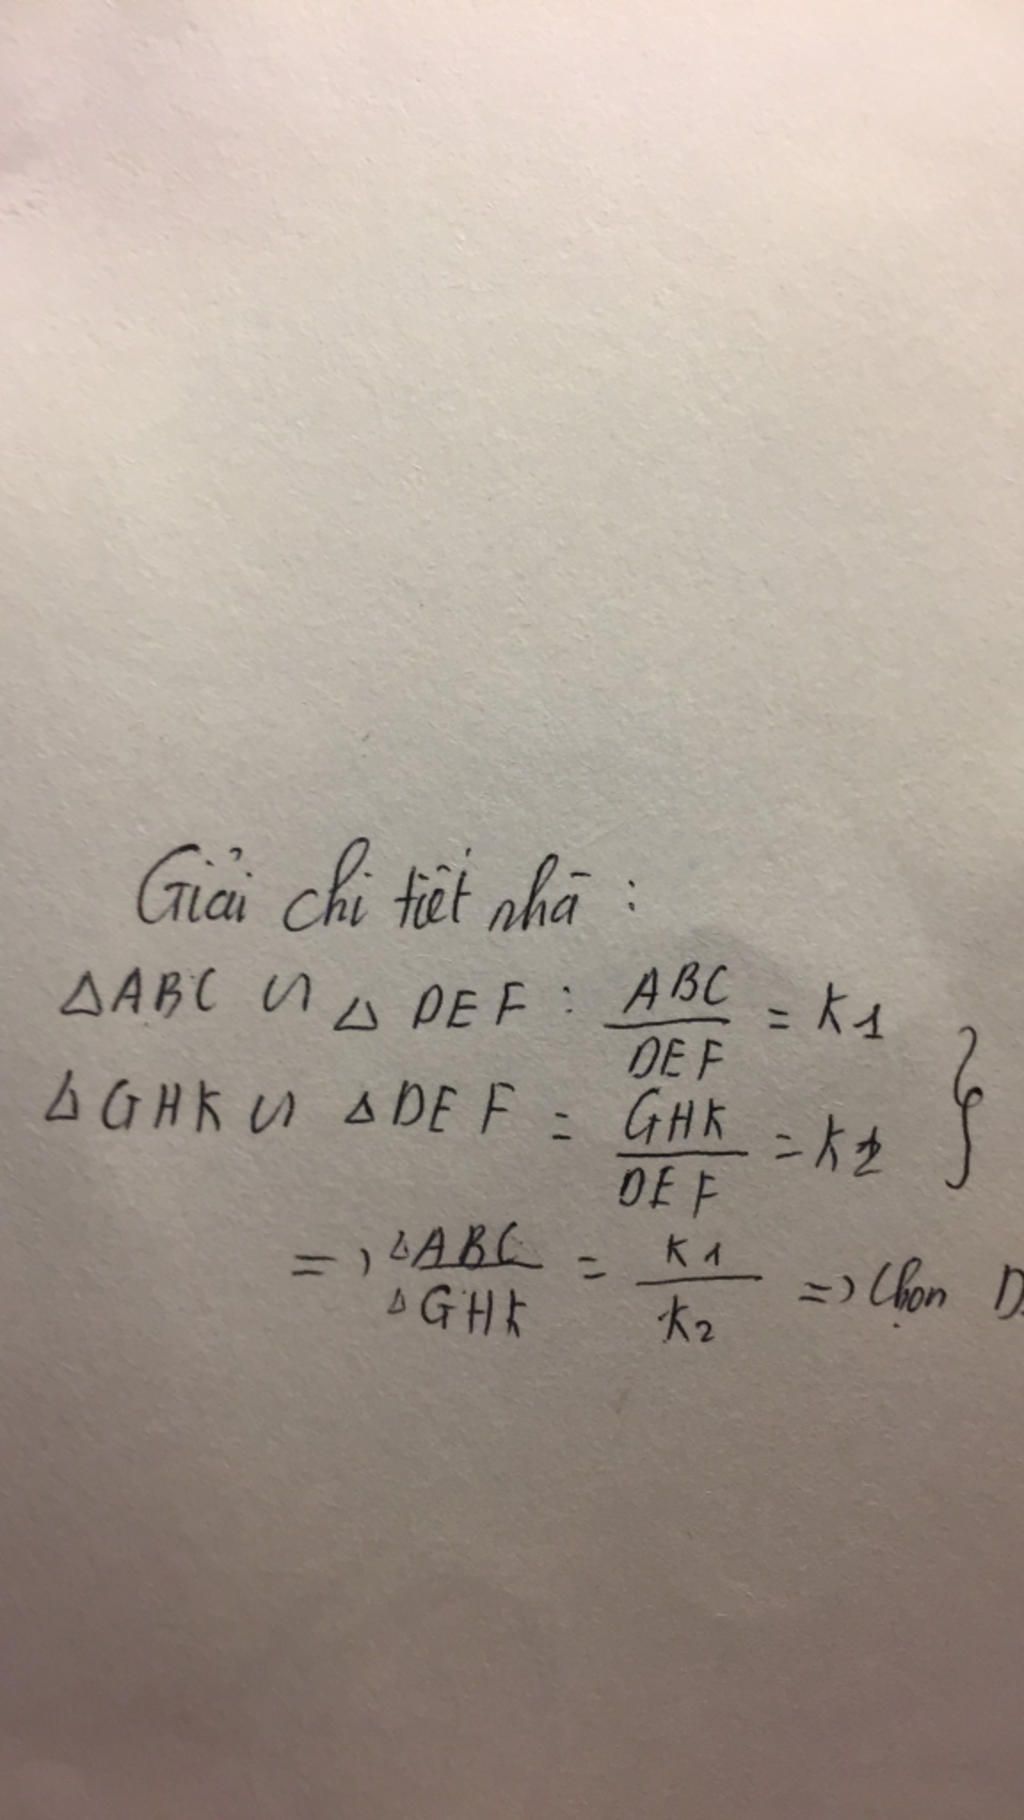 Giải chi tiết nhā :
△ABC ∽ △ DEF : ABC/DEF = K1
△GHK ∽ △DEF = GHK/DEF = K2 }
=> △ABC/△GHK = K1/K2 => Chọn D.